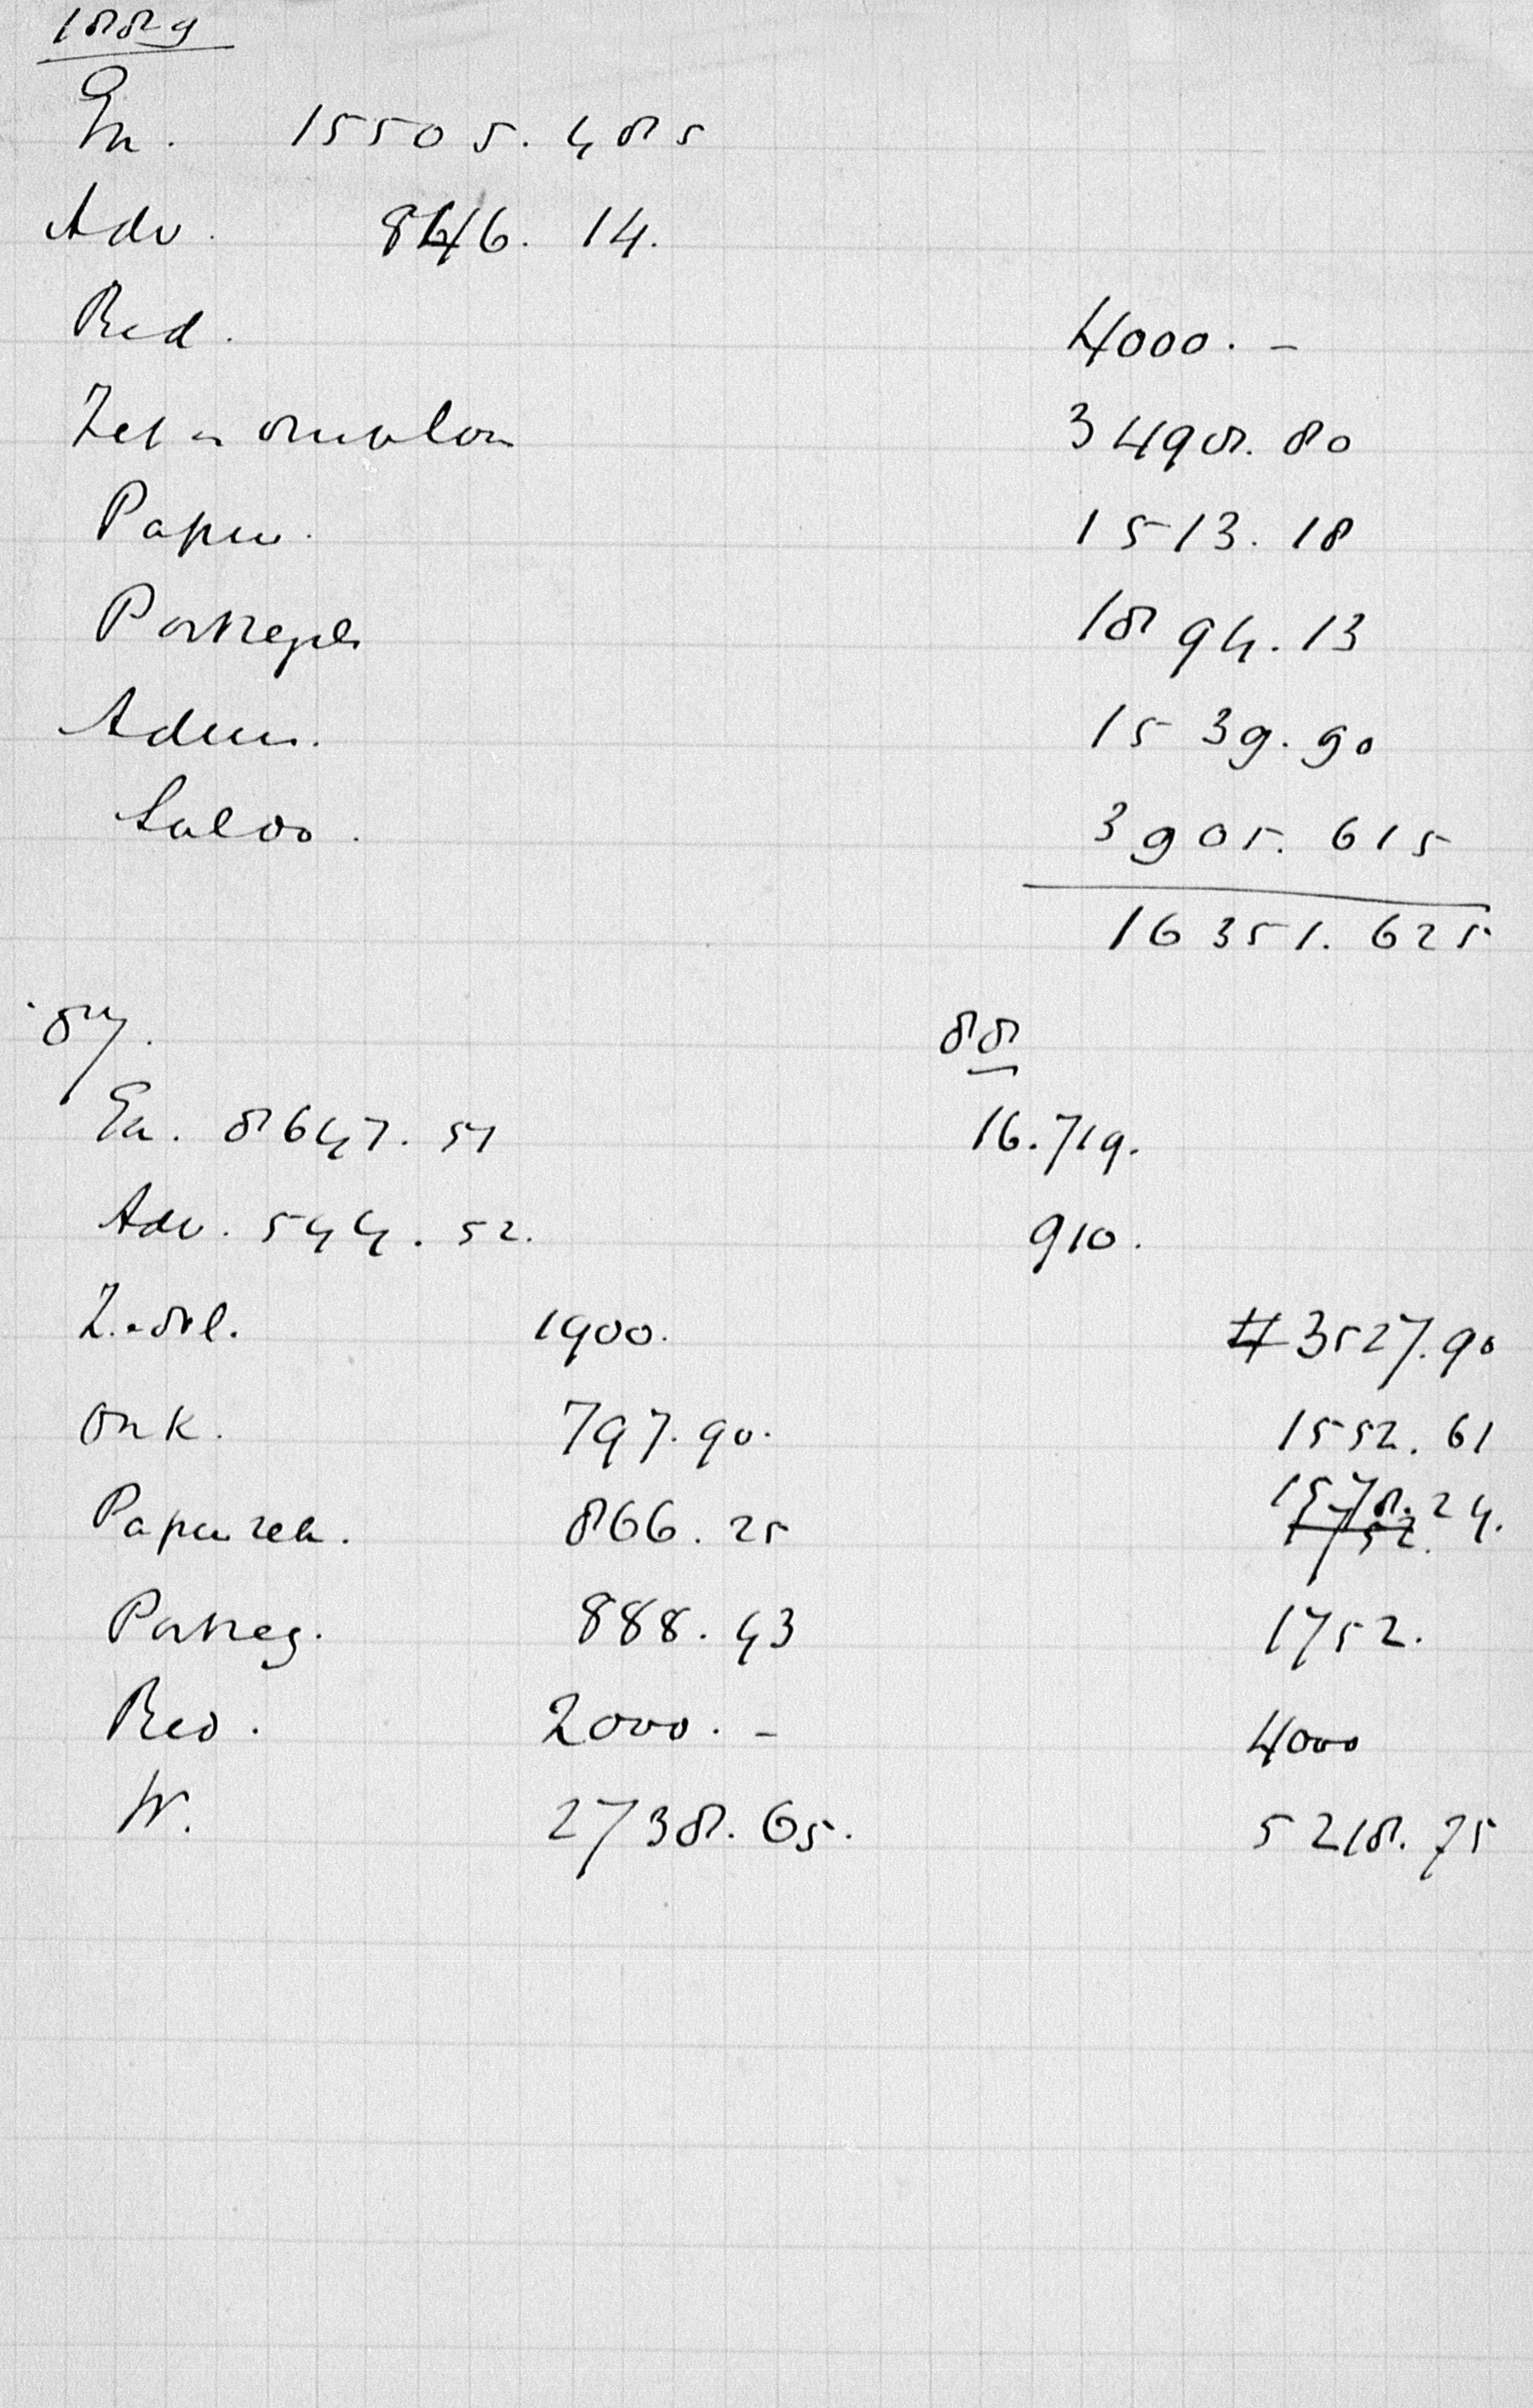 1889
En. 15505.485
Adv. 846.14.
Red. 4000.-
Zet en drukloon 3498.80
Papier. 1513.18
Postzegels 1894.13
Admin. 1539.90
Saldo. 3905.615
16351.625
'87. 88
En. 8647.51 16.719.
Adv. 544.52. 910.
Z. e. drl. 1900. 3527.90
Onk. 797.90. 1552.61
Papierrek. 866.25 1578.24.
Postzeg. 888.43 1752.
Red. 2000.- 4000
W. 2738.65. 5218.75